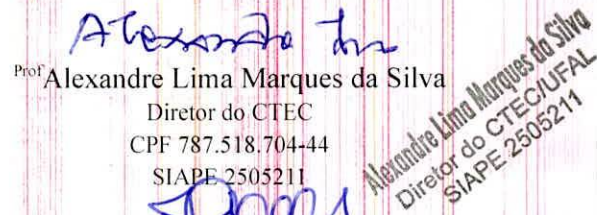 Prof Alexandre Lima Marques da Silva
Diretor do CTEC
CPF 787.518.704-44
SIAPE 2505211
Alexandre Lima Marques da Silva
Diretor do CTEC/UFAL
SIAPE 2505211